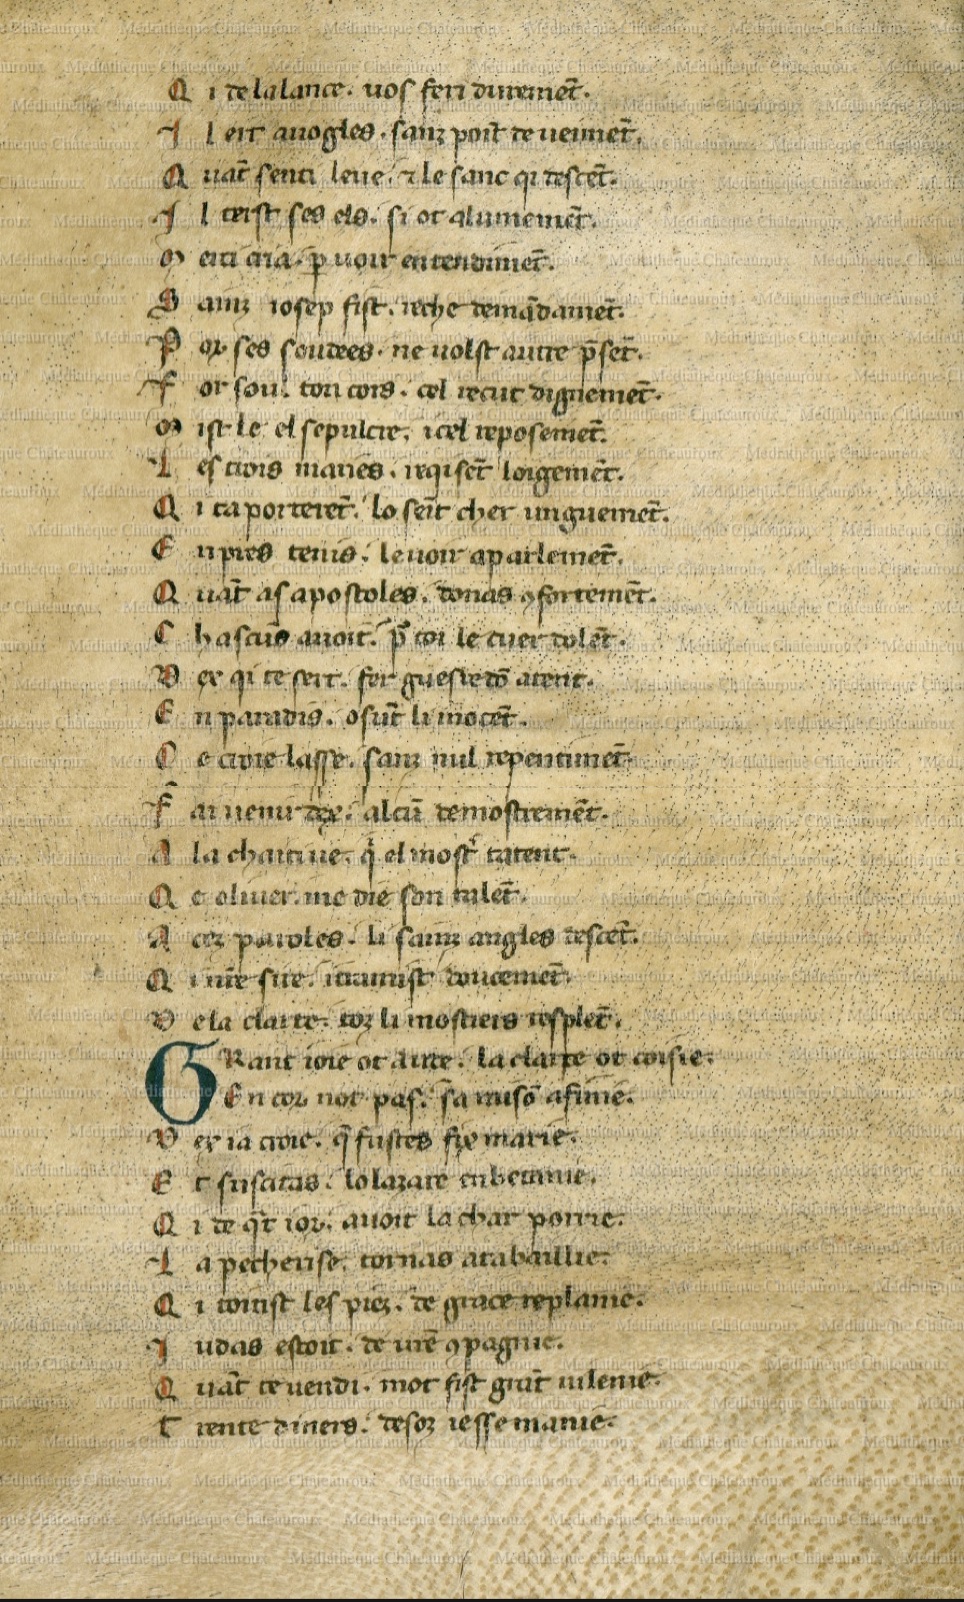 Q i de la lance. uos feri durem̃et.
I l ert auogles. sanz point de ueum̃et.
Q uãt senti l eue. ⁊ le sanc qi descẽt.
I l terst ses els. si ot alumem̃et.
M erci cria. p uoir entendim̃et.
S ainz iosep fist. reche demãdam̃et.
P or ses soudees. ne uolst autre p̃sẽt.
F or soul ton cors. cel recut dignem̃et.
M ist le el sepulcre. icel reposem̃et.
L es trois maries. reqisẽt loigem̃et.
Q i ta porterẽt. lo seĩt cher unguem̃et.
E n pres tenis. le uoir aparlem̃et.
Q uãt as apostoles. donas ꝯfortem̃et.
C hascũs auoit. p̃ toi le cuer dolẽt.
D ex qi te sert. fer guesredõ atent.
E n paradis. o sũt li inocẽt.
C e croie lasse. sanz nul repentim̃et.
F ai uenir dex. alcũ demostrem̃et.
A la chaitiue. q̃ el most̃ tatent.
Q e oliuer. me die son talẽt.
A cez paroles. li sainz angles descẽt.
Q i nr̃e sire. i tramist doucem̃et.
D e la clarte. toz li mostiers resplẽt.
G Rant ioie ot aute. la clarte ot coisie.
E n cor not pas. sa raisõ afinie.
D ex ia croie. q̃ fustes fix marie.
E t suscitas. lo lazare en betanie.
Q i de q̃t iorz. auoit la char porrie.
L a pecherise. tornas a ta baillie.
Q i toint les piez. de grace replanie.
I udas estoit. de ur̃e ꝯpagnie.
Q uãt te uendi. mot fist grãt uilenie.
T rente diners. desoz iesse manie.